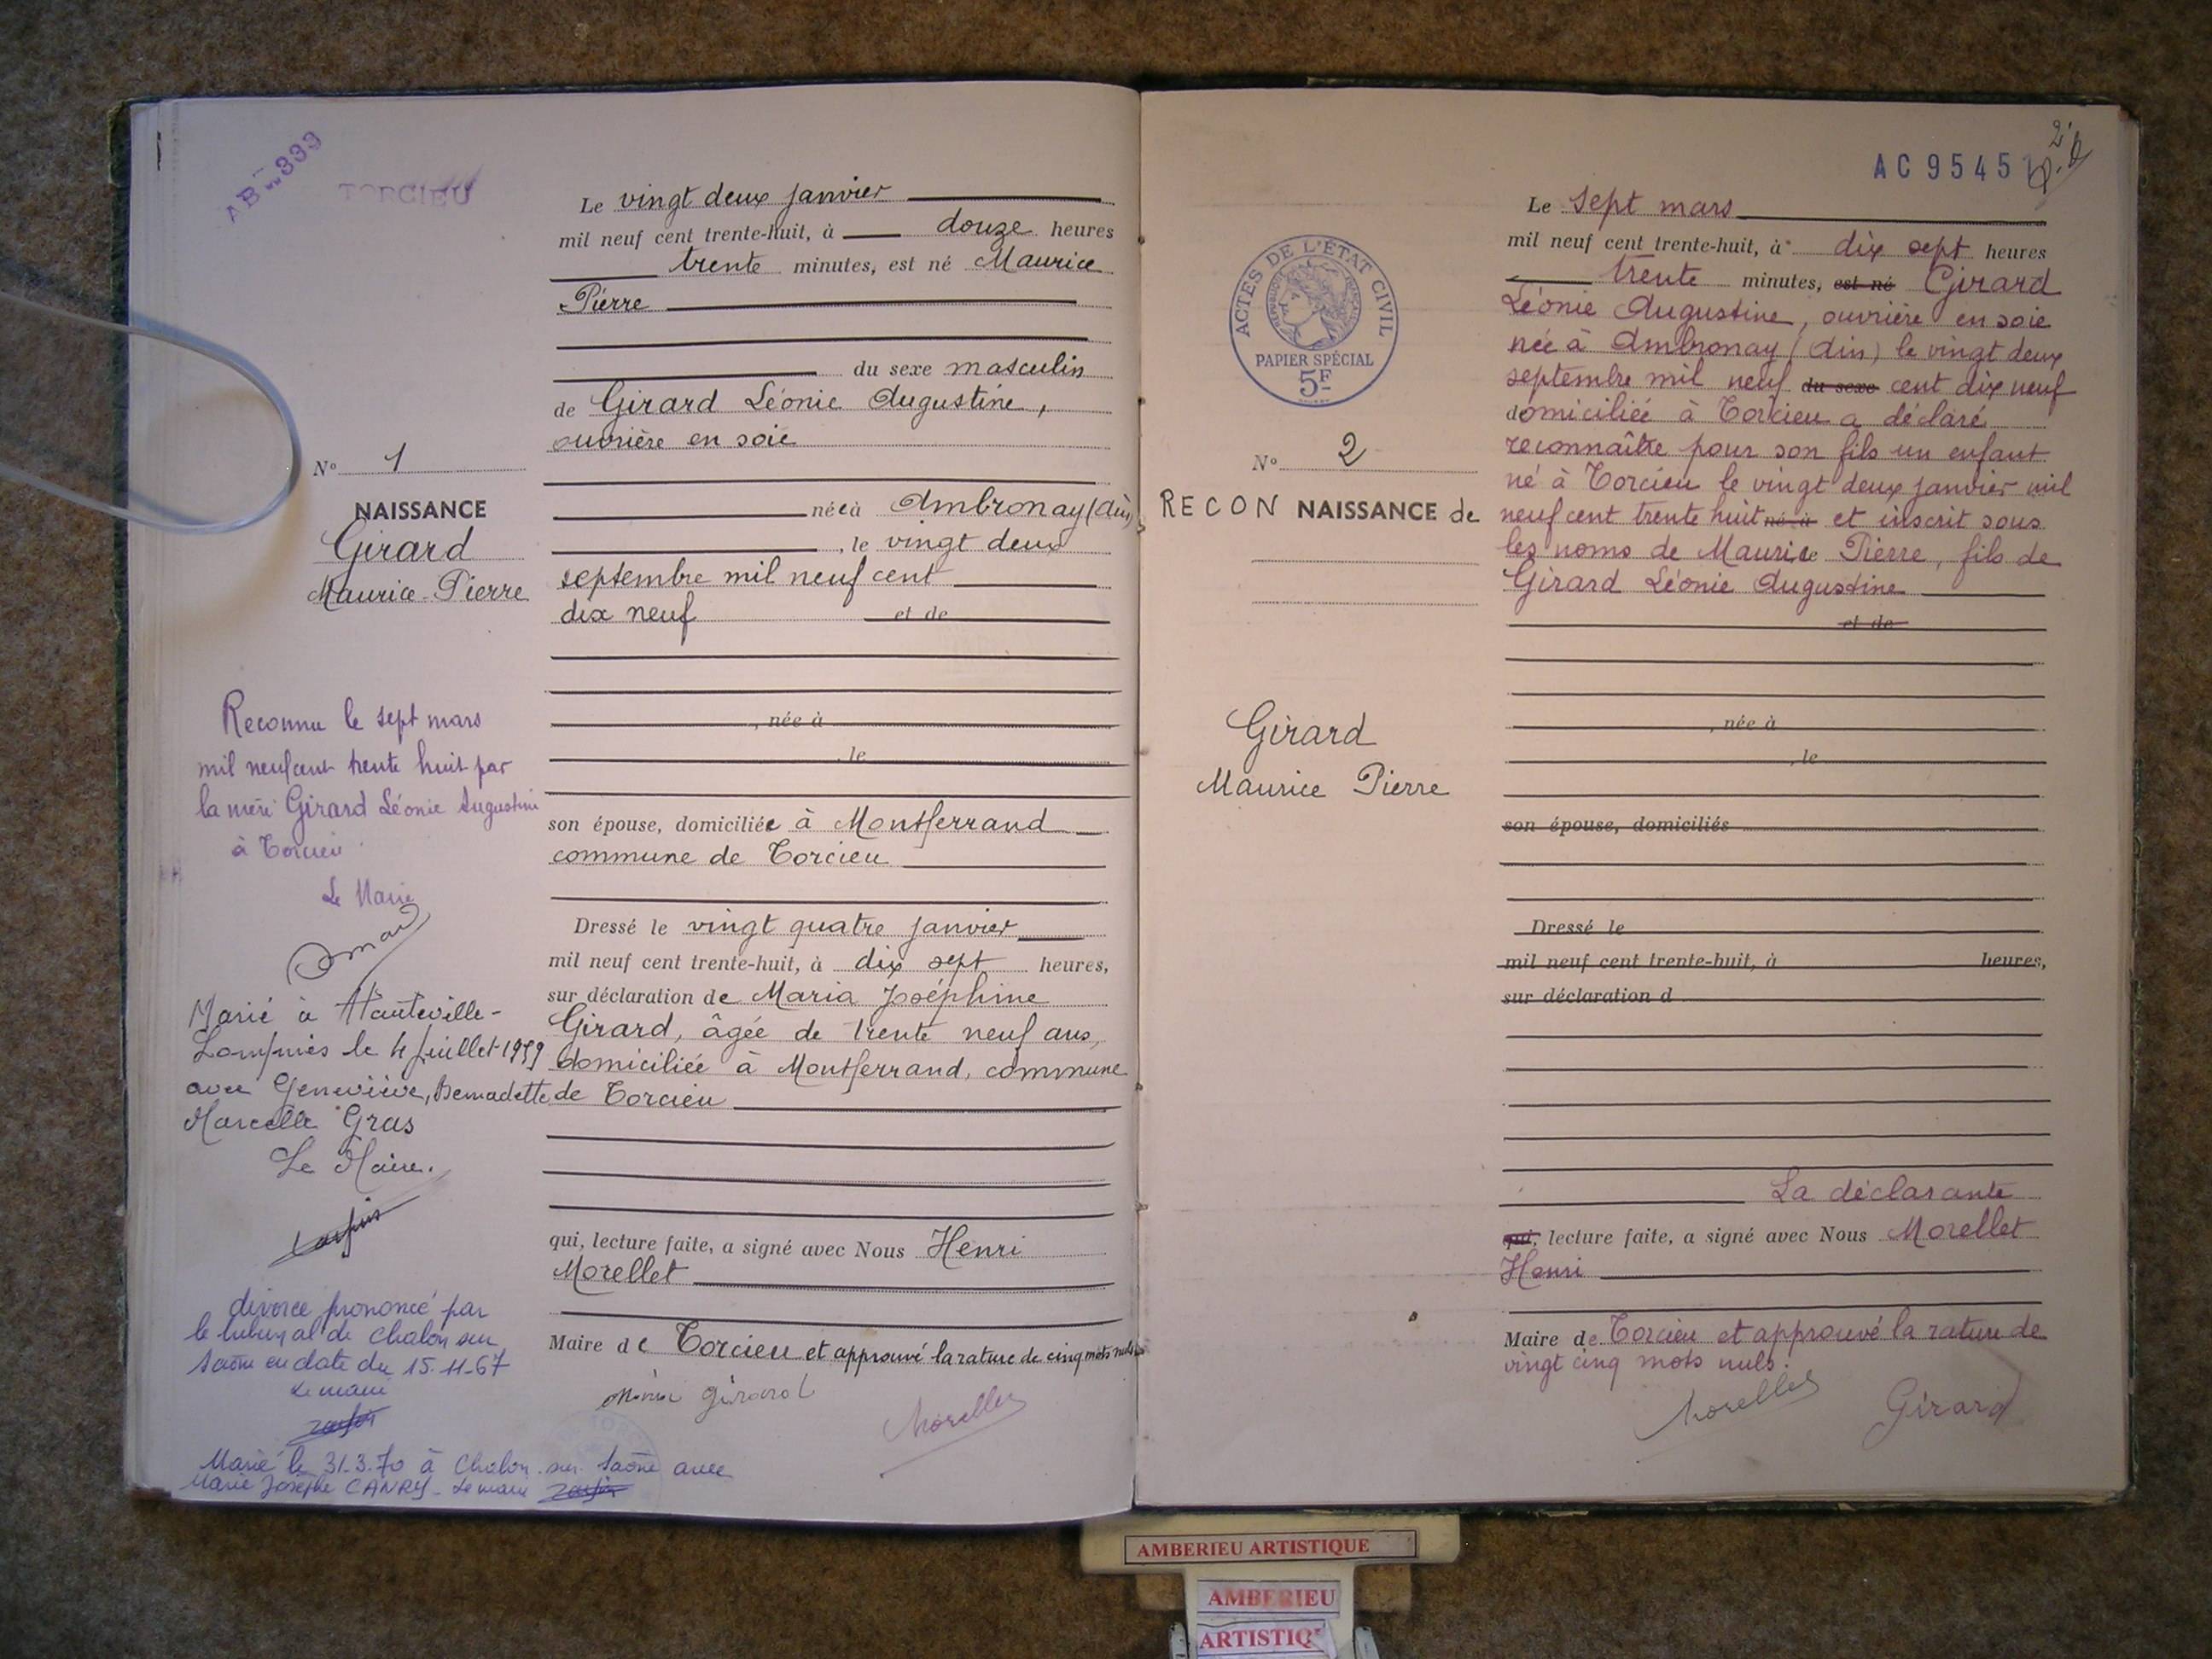 TORCIEU
Le vingt deux janvier
mil neuf cent trente-huit, à douze heures
trente minutes, est né Maurice
Pierre
du sexe masculin
de Girard Léonie Augustine,
ouvrière en soie
née à Ambronay (Ain)
, le vingt deux
septembre mil neuf cent
dix neuf et de
, née à
, le
son épouse, domiciliée à Montferrand
commune de Torcieu
Dressé le vingt quatre janvier
mil neuf cent trente-huit, à dix sept heures,
sur déclaration de Maria Joséphine
Girard, âgée de trente neuf ans,
domiciliée à Montferrand, commune
de Torcieu
qui, lecture faite, a signé avec Nous Henri
Morellet
Maire de Torcieu et approuvé la rature de cinq mots nuls
Girard
Morellet
N° 1
NAISSANCE
Girard
Maurice-Pierre
Reconnu le sept mars
mil neuf cent trente huit par
la mère Girard Léonie Augustine
à Torcieu
Le Maire
Marié à Hauteville-
Lompnès le 4 juillet 1959
avec Geneviève, Bernadette
Marcelle Gras
Le Maire.
divorce prononcé par
le tribunal de Chalon sur
Saône en date du 15-11-67
Le maire
Marié le 31.3.70 à Chalon sur Saône avec
Marie Josèphe CANRY - Le maire
AC 9545
Le sept mars
mil neuf cent trente-huit, à dix sept heures
trente minutes, est né Girard
Léonie Augustine, ouvrière en soie
née à Ambronay (Ain) le vingt deux
septembre mil neuf du sexe cent dix neuf
domiciliée à Torcieu a déclaré
reconnaître pour son fils un enfant
né à Torcieu le vingt deux janvier mil
neuf cent trente huit né à et inscrit sous
les noms de Maurice Pierre, fils de
Girard Léonie Augustine
et de
, née à
, le
son épouse, domiciliés
Dressé le
mil neuf cent trente-huit, à heures,
sur déclaration d
La déclarante
qui, lecture faite, a signé avec Nous Morellet
Henri
Maire de Torcieu et approuvé la rature de
vingt cinq mots nuls.
Morellet Girard
ACTES DE L'ÉTAT CIVIL
PAPIER SPÉCIAL
5F
N° 2
RECONNAISSANCE de
Girard
Maurice Pierre
AMBERIEU ARTISTIQUE
AMBERIEU
ARTISTIQ